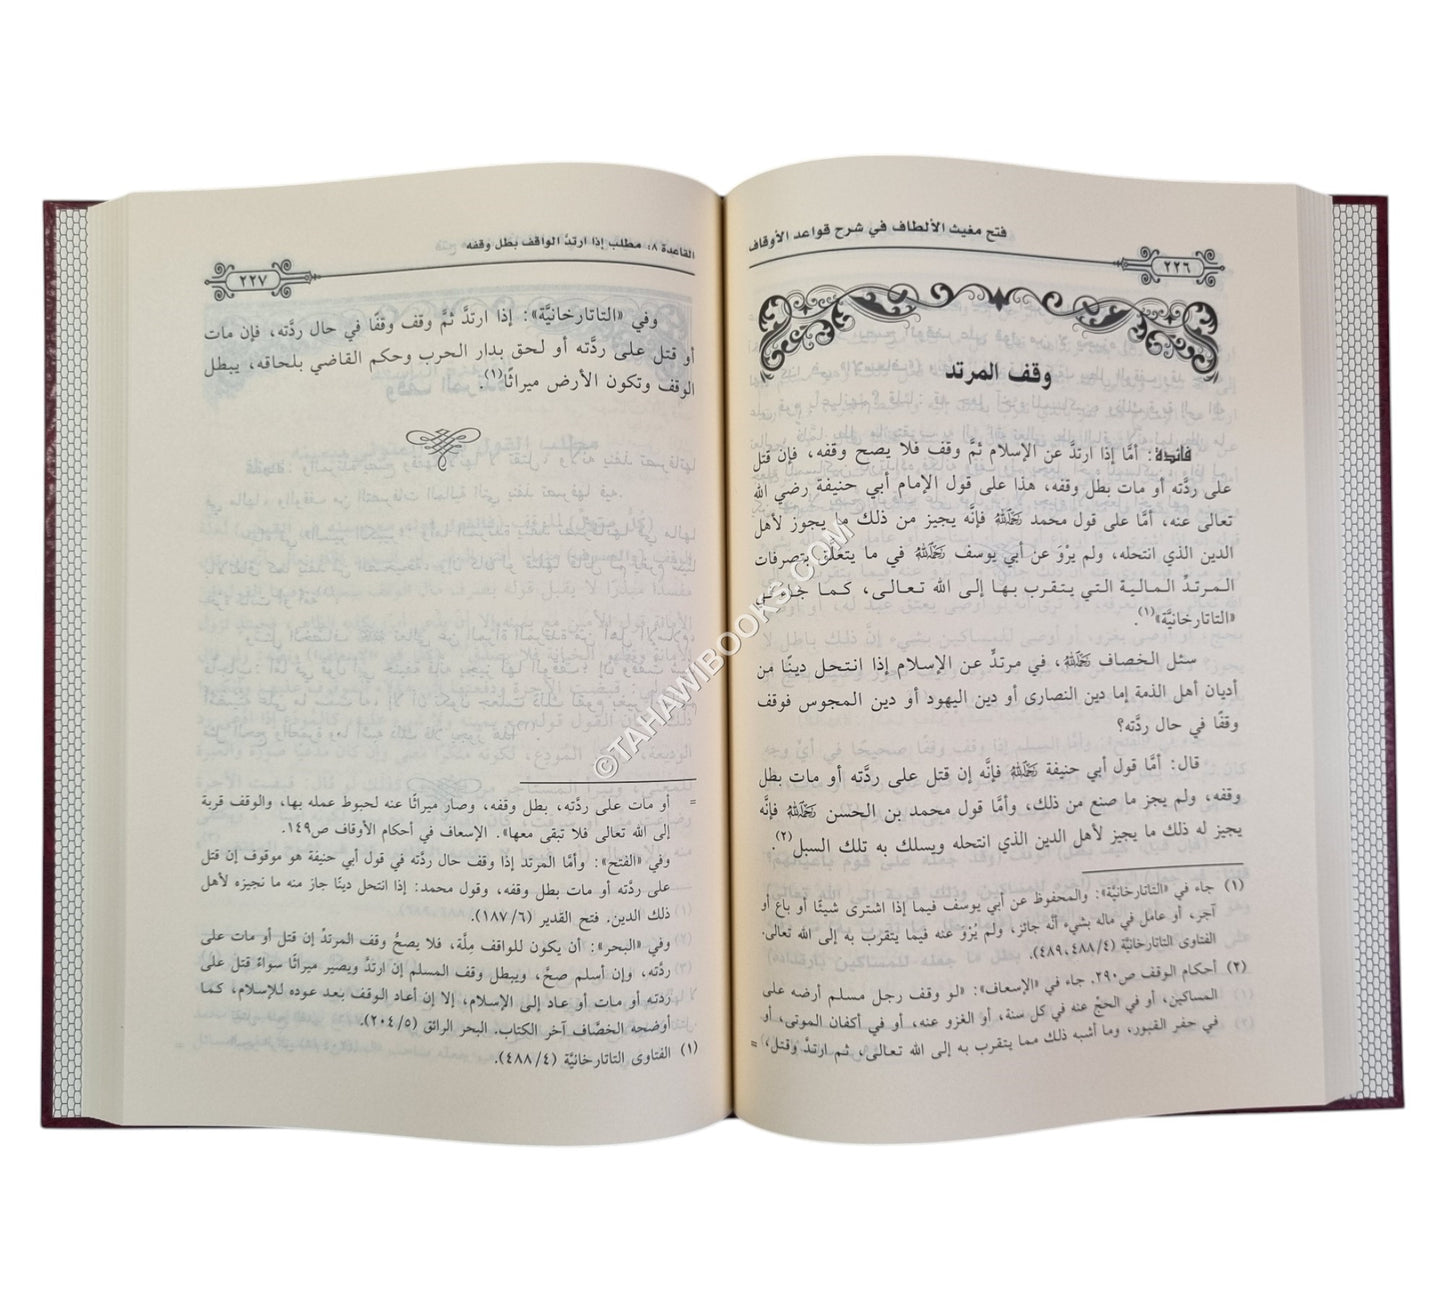 فتح مغيث الألطاف في شرح قواعد الأوقاف
٢٢٦
وقف المرتد
فائدة: أمَّا إذا ارتدَّ عن الإسلام ثمَّ وقف فلا يصح وقفه، فإن قتل
على ردَّته أو مات بطل وقفه، هذا على قول الإمام أبي حنيفة رضي الله
تعالى عنه، أمَّا على قول محمد رَحِمَهُ اللهُ فإنَّه يجيز من ذلك ما يجوز لأهل
الدين الذي انتحله، ولم يرْوَ عن أبي يوسف رَحِمَهُ اللهُ في ما يتعلَّق بتصرفات
المرتدِّ المالية التي يتقرب بها إلى الله تعالى، كما جاء في
«التاتارخانيَّة»(١).
سئل الخصاف رَحِمَهُ اللهُ، في مرتدٍّ عن الإسلام إذا انتحل دينًا من
أديان أهل الذمة إما دين النصارى أو دين اليهود أو دين المجوس فوقف
وقفًا في حال ردَّته؟
قال: أمَّا قول أبي حنيفة رَحِمَهُ اللهُ فإنَّه إن قتل على ردَّته أو مات بطل
وقفه، ولم يجز ما صنع من ذلك، وأمَّا قول محمد بن الحسن رَحِمَهُ اللهُ فإنَّه
يجيز له ذلك ما يجيز لأهل الدين الذي انتحله ويسلك به تلك السبل(٢).
(١) جاء في «التاتارخانيَّة»: والمحفوظ عن أبي يوسف فيما إذا اشترى شيئًا أو باع أو
آجر، أو عامل في ماله بشيء أنَّه جائز، ولم يُرْوَ عنه فيما يتقرب به إلى الله تعالى.
الفتاوى التاتارخانيَّة (٤/ ٤٨٨، ٤٨٩).
(٢) أحكام الوقف ص٢٩٠. جاء في «الإسعاف»: «لو وقف رجل مسلم أرضه على
المساكين، أو في الحجِّ عنه في كل سنة، أو الغزو عنه، أو في أكفان الموتى، أو
في حفر القبور، وما أشبه ذلك مما يتقرب به إلى الله تعالى، ثم ارتدَّ وقتل، =
القاعدة ٨: مطلب إذا ارتدَّ الواقف بطل وقفه
٢٢٧
وفي «التاتارخانيَّة»: إذا ارتدَّ ثمَّ وقف وقفًا في حال ردَّته، فإن مات
أو قتل على ردَّته أو لحق بدار الحرب وحكم القاضي بلحاقه، يبطل
الوقف وتكون الأرض ميراثًا(١).
= أو مات على ردَّته، بطل وقفه، وصار ميراثًا عنه لحبوط عمله بها، والوقف قربة
إلى الله تعالى فلا تبقى معها». الإسعاف في أحكام الأوقاف ص١٤٩.
وفي «الفتح»: وأمَّا المرتد إذا وقف حال ردَّته في قول أبي حنيفة هو موقوف إن قتل
على ردَّته أو مات بطل وقفه، وقول محمد: إذا انتحل دينًا جاز منه ما نجيزه لأهل
ذلك الدين. فتح القدير (٦/ ١٨٧).
وفي «البحر»: أن يكون للواقف مِلَّة، فلا يصحُّ وقف المرتدِّ إن قتل أو مات على
ردَّته، وإن أسلم صحَّ، ويبطل وقف المسلم إن ارتدَّ ويصير ميراثًا سواءً قتل على
ردته أو مات أو عاد إلى الإسلام، إلا إن أعاد الوقف بعد عوده للإسلام، كما
أوضحه الخصَّاف آخر الكتاب. البحر الرائق (٥/ ٢٠٤).
(١) الفتاوى التاتارخانيَّة (٤/ ٤٨٨).
©TAHAWIBOOKS.COM